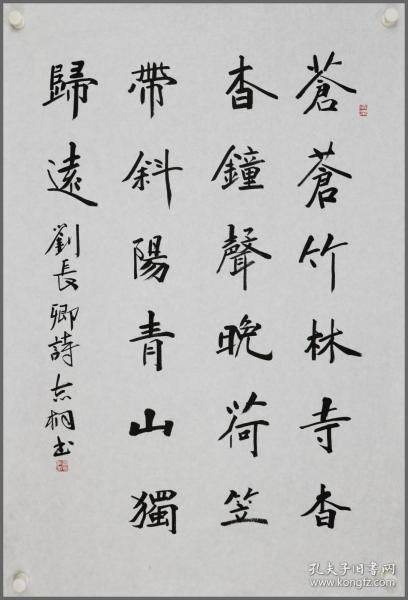 蒼蒼竹林寺杳
杳鐘聲晚荷笠
帶斜陽青山獨
歸遠劉長卿詩志桐书
孔夫子旧书网
www.kongfz.com